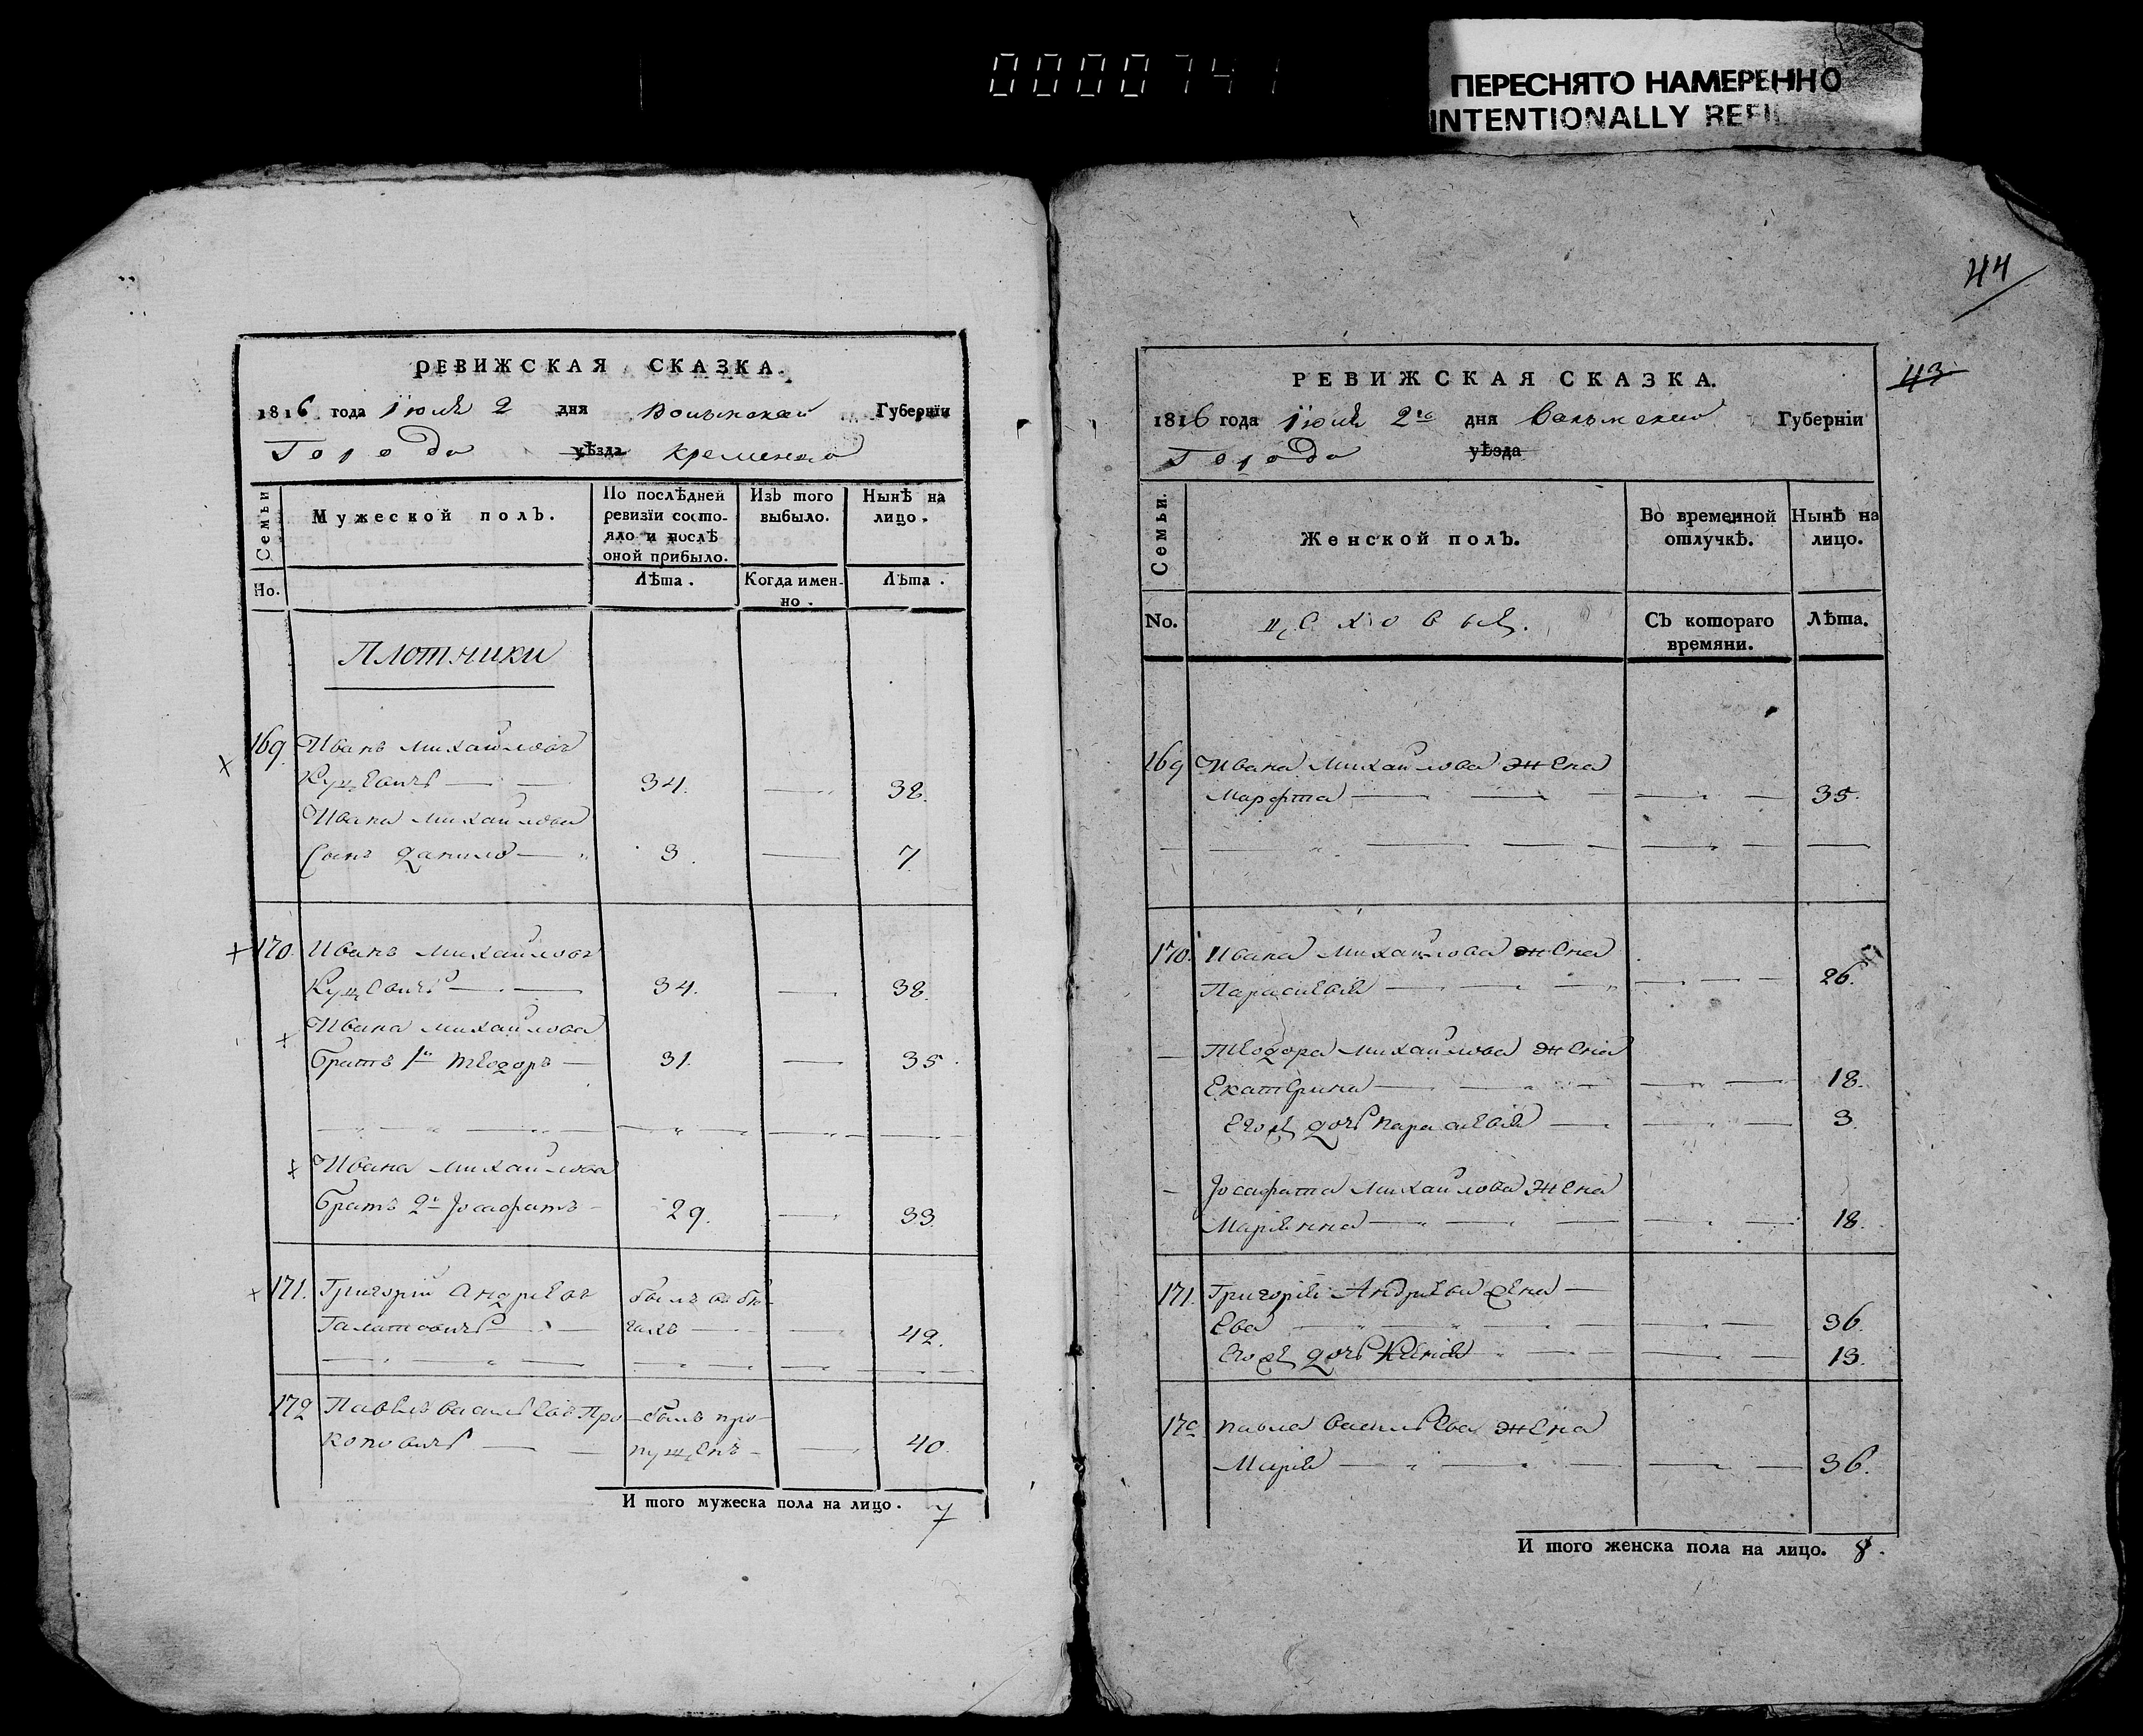 0000741
ПЕРЕСНЯТО НАМЕРЕННО
INTENTIONALLY REFI
44
43
РЕВИЖСКАЯ СКАЗКА.
1816 года Іюля 2 дня Волынской Губерніи
Города уѣзда Кременца
Семьи
Мужеской полъ.
По послѣдней ревизіи состояло и послѣ оной прибыло.
Изъ того выбыло.
Нынѣ на лицо.
Но.
Лѣта.
Когда именно.
Лѣта.
Плотники
169. Иванъ Михайловъ
34. 38.
Ивана Михайлова
Сынъ Данило 3. 7.
170. Иванъ Михайловъ
34. 38.
Ивана Михайлова
Братъ 1й Теодоръ 31. 35.
Ивана Михайлова
Братъ 2й Іосафатъ 29. 33.
171. Григорій Андреевъ былъ въ бѣ-
гахъ 42.
172 Павелъ Васильевъ Про- былъ про-
коповичъ пущенъ 40.
И того мужеска пола на лицо. 7
РЕВИЖСКАЯ СКАЗКА.
1816 года Іюля 2го дня Волынской Губерніи
Города уѣзда
Семьи.
Женской полъ.
Во временной отлучкѣ.
Нынѣ на лицо.
No.
цеховыя.
Съ котораго времяни.
Лѣта.
169 Ивана Михайлова жена
Марфта 35.
170. Ивана Михайлова жена
Параскевія 26.
Теодора Михайлова жена
Екатерина 18.
Его же дочь Параскевія 3.
Іосафата Михайлова жена
Маріянна 18.
171. Григорія Андреева жена
Ева 36.
Его же дочь Ксенія 13.
172 Павла Васильева жена
Марія 36.
И того женска пола на лицо. 8.